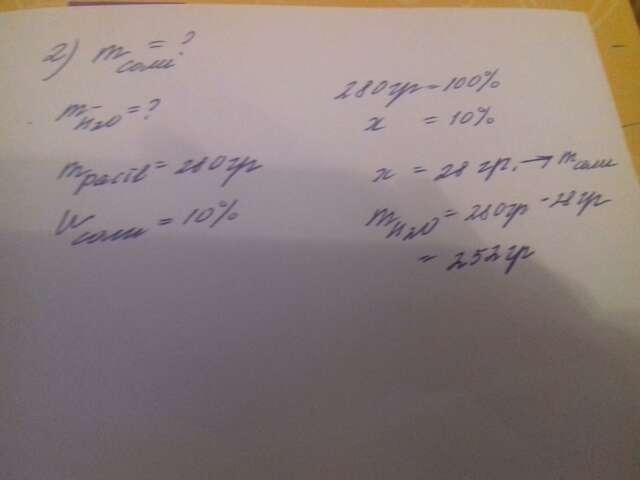 2) m соли = ?
m H2O = ?
m раств = 280гр
W соли = 10%
280гр = 100%
x = 10%
x = 28 гр. → m соли
m H2O = 280гр - 28гр
= 252гр